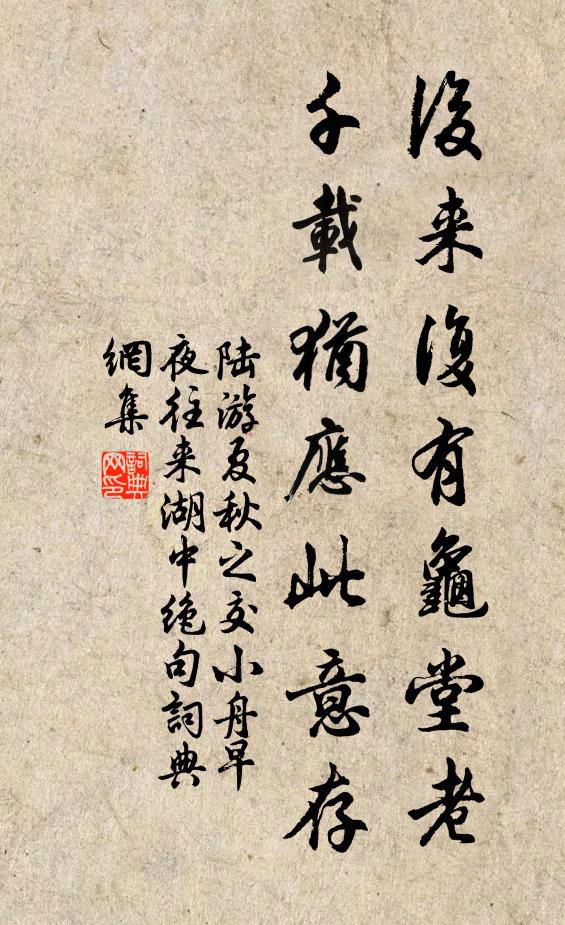 後来復有龜堂老
千載猶應此意存
陆游夏秋之交小舟早
夜往来湖中绝句詞典
網集
詞典
网印